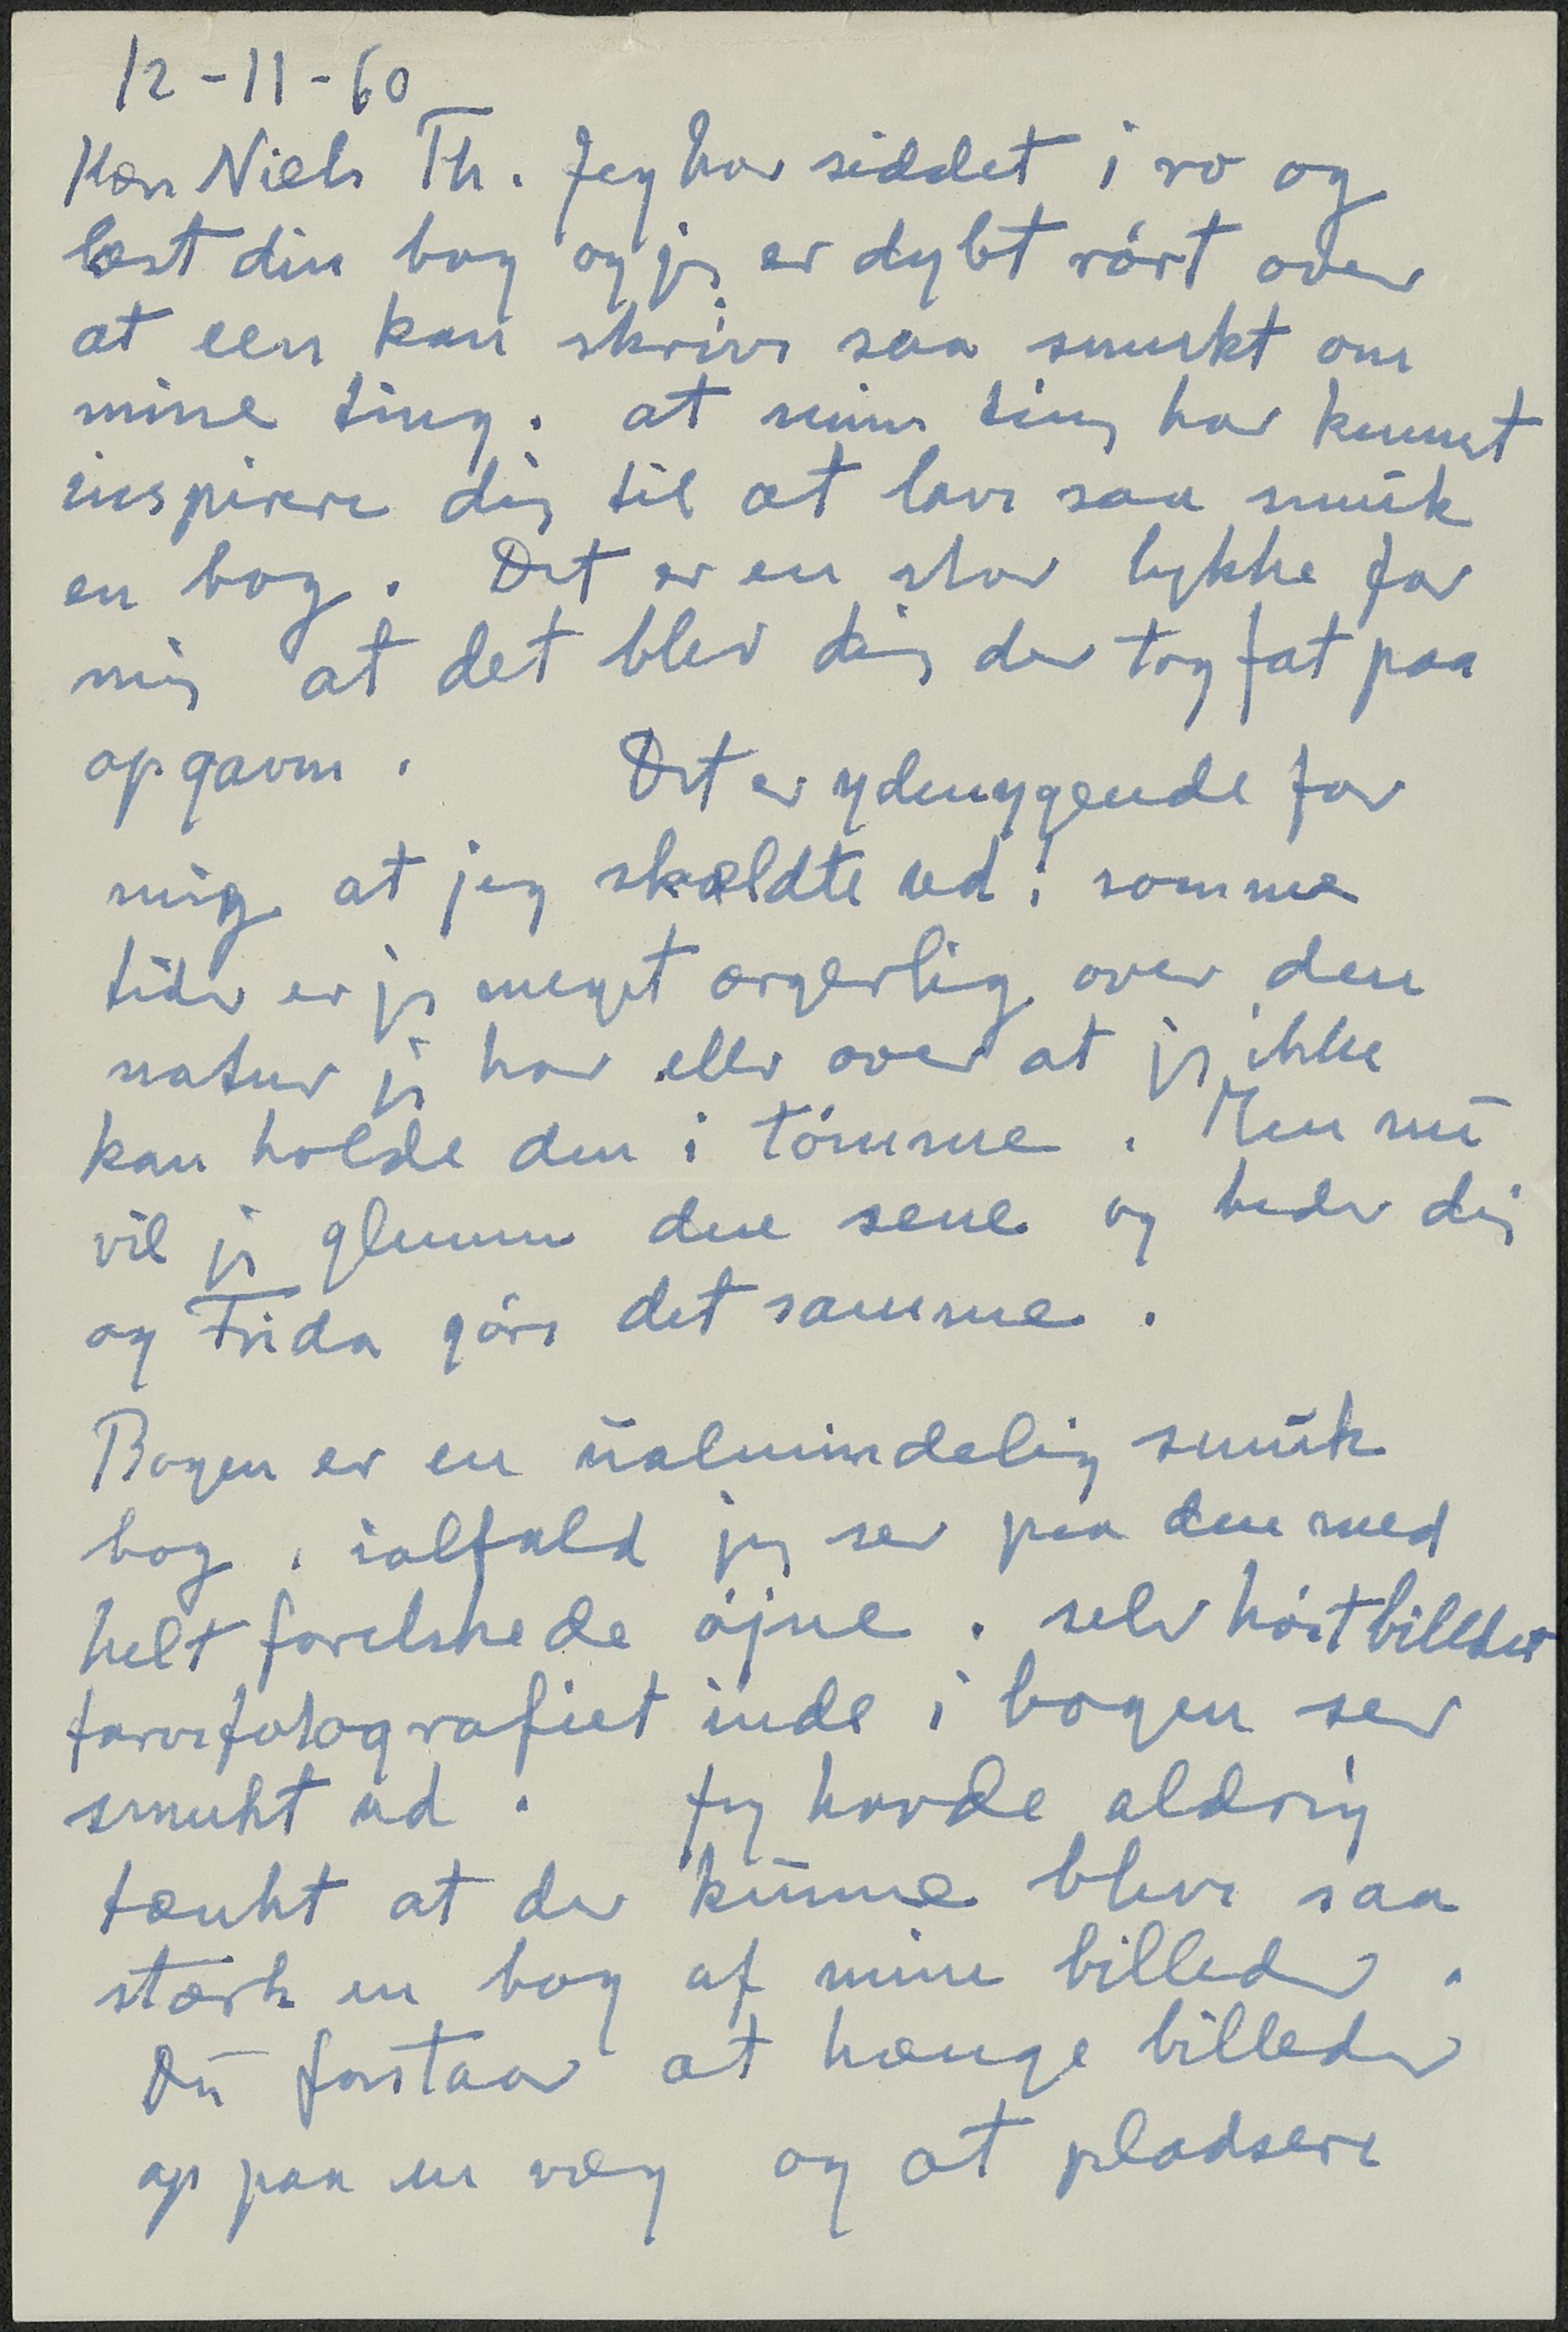 12-11-60
Kære Niels Th. Jeg har siddet i ro og
læst din bog og jeg er dybt rórt over
at een kan skrive saa smukt om
mine ting. at mine ting har kunnet
inspirere dig til at lave saa smuk
en bog. Det er en stor lykke for
mig at det blev dig der tog fat paa
opgaven. Det er ydmygende for
mig at jeg skældte ud; somme
tider er jeg meget ærgerlig over den
natur jeg har eller over at jeg ikke
kan holde den i tómme. Men nu
vil jeg glemme den scene og beder dig
og Frida góre det samme.
Bogen er en ualmindelig smuk
bog, ialfald jeg ser paa den med
helt forelskede ójne. selv hóstbilledet
farvefotografiet inde i bogen ser
smukt ud. Jeg havde aldrig
tænkt at der kunne blive saa
stærk en bog af mine billeder.
Du forstaar at hænge billeder
op paa en væg og at pladsere